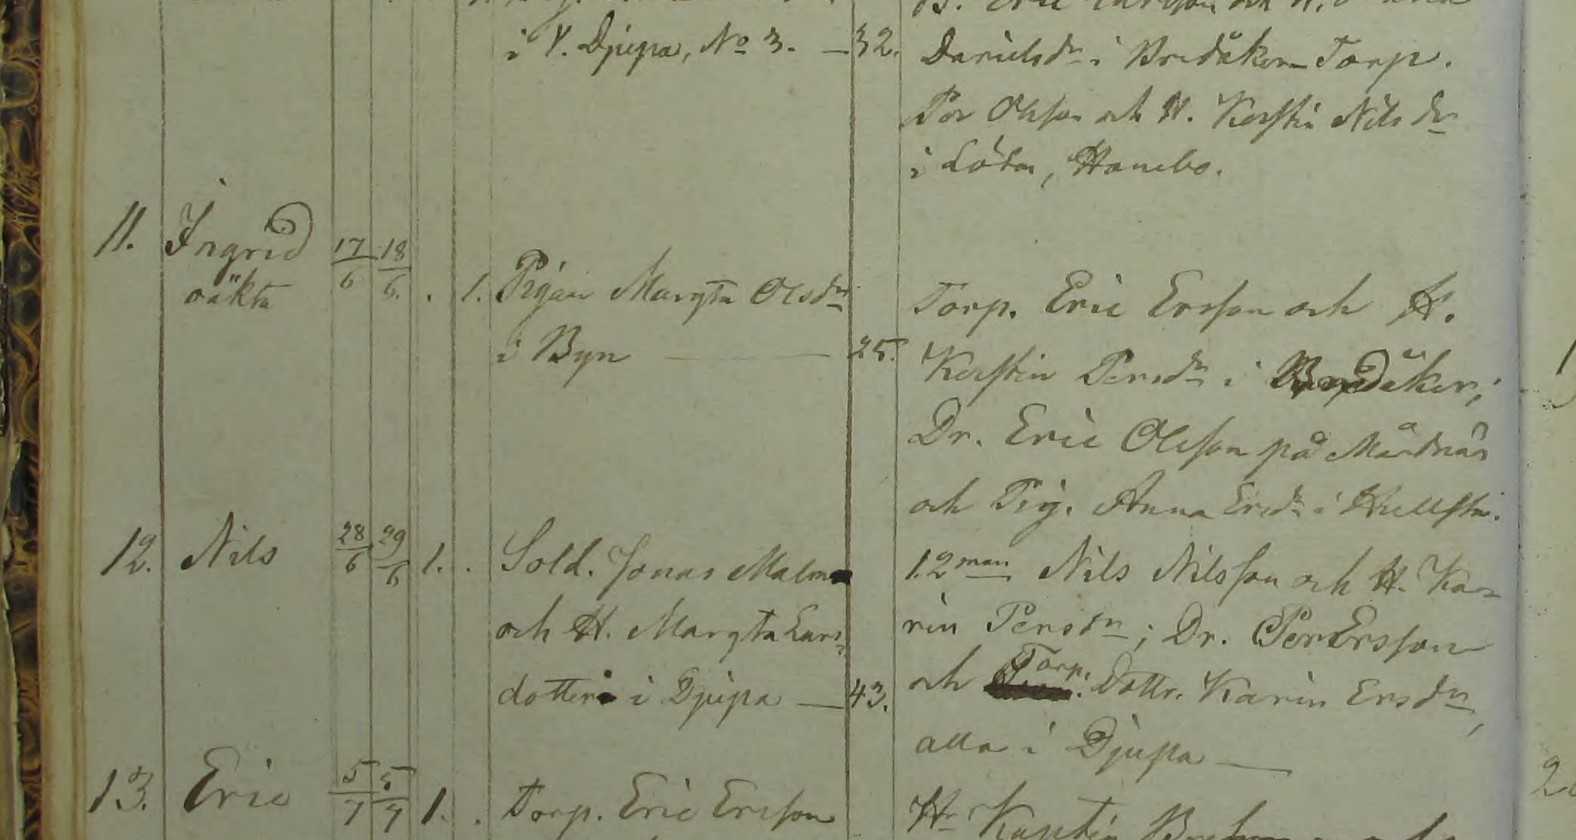 i Y. Djupa, No 3. — 32. Danielsdr i Bredåker Torp.
Per Olsson och H. Kerstin Nilsdr
i Löten, Hanebo.
11. Ingrid 17/6 18/6 . 1. Pigan Margta Olsdr
oäkta
Torp. Eric Ersson och H.
i Byn — 25. Kerstin Persdr i Bredåker;
Dr. Eric Olsson på Mårdnäs
och Pig. Anna Ersdr i
12. Nils 28/6 29/6 1. . Sold. Jonas Malm 12man Nils Nilsson och H. Ka-
och H. Margta Lars- rin Persdr; Dr. Per Ersson
dotter i Djupa — 43. och Torp. Dottr. Karin Ersdr,
alla i Djupa —
13. Eric 5/7 5/7 1. . Torp. Eric Ersson Hr